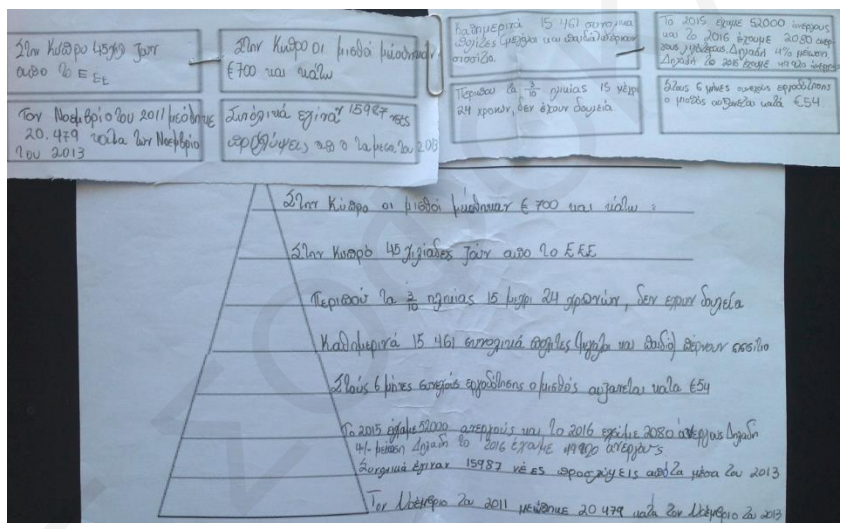 Στην Κύπρο 45χιλ ζουν
απο το Ε ΕΕ
Στην Κυπρο οι μισθοί μειωθηκαν
€700 και κάτω
Τον Νοεμβριο του 2011 μειωθηκε
20.479 κατα τον Νοεμβριο
του 2013
Συνολικά εγιναν 15987 νεες
προσλήψεις από τα μεσα του 2013
Καθημερινά 15 461 συνολικα
πολίτες (μεγαλοι και παιδιά) παίρνουν
συσσίτιο.
Περιπου τα 3/10 ηλικίας 15 μέχρι
24 χρονών, δεν έχουν δουλειά
Το 2015 είχαμε 52000 άνεργους
και το 2016 έχουμε 2080
Δηλαδή 4% μείωση
Δηλαδή το 2016 έχουμε 49920
Στους 6 μήνες συνεχούς εργοδότησης
ο μισθός αυξανεται κατά €54
Στην Κύπρο οι μισθοί μειώθηκαν € 700 και κάτω
Στην Κυπρο 45 χιλιάδες ζουν απο το ΕΕΕ
Περιπού τα 3/10 ηλικίας 15 μεχρι 24 χρονών, δεν εχουν δουλεία
Καθημερινά 15 461 συνολικά πολίτες (μεγαλοι και παιδιά) πέρνουν σισσίτιο
Στούς 6 μήνες συνεχούς εργοδότησης ο μισθός αυξανεται κατα €54
Το 2015 είχαμε 52000 ανεργούς και το 2016 έχουμε 2080 άνεργους Δηλαδή
4% μειωση Δηλαδή το 2016 έχουμε 49920 άνεργους
Συνολικά έγιναν 15987 νέες προσλήψεις από τα μέσα του 2013
Τον Νοέμβριο του 2011 μειώθηκε 20 479 κατα τον Νοέμβριο του 2013